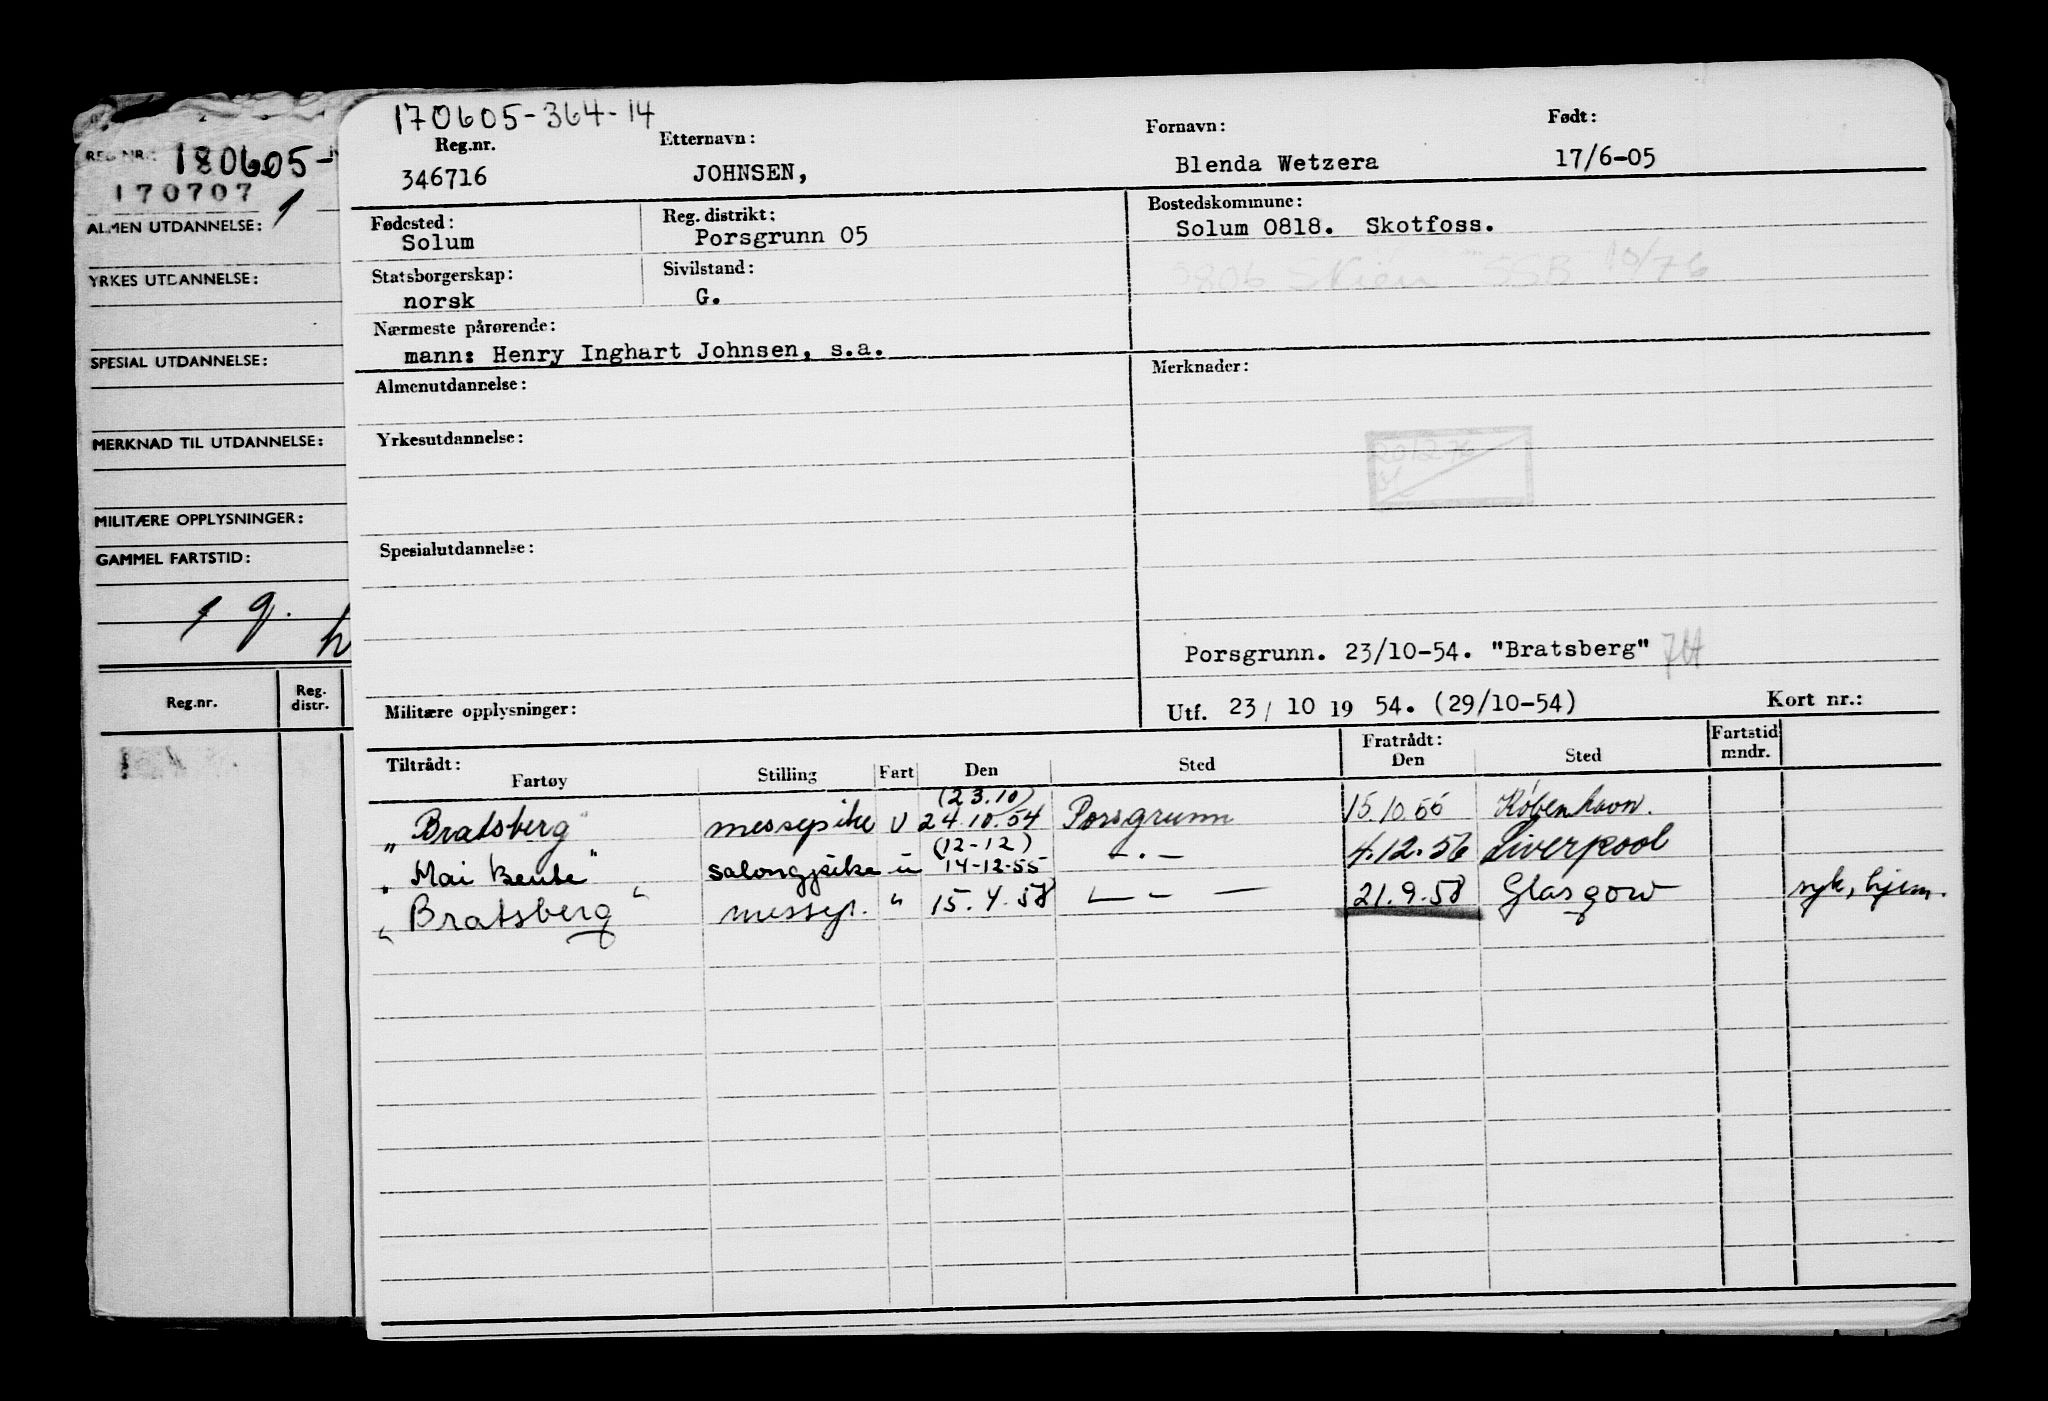 170605-364-14
Reg.nr. Etternavn: Fornavn: Født:
346716 JOHNSEN, Blenda Wetzera 17/6-05
Fødested: Reg. distrikt: Bostedskommune:
Solum Porsgrunn 05 Solum 0818. Skotfoss.
Statsborgerskap: Sivilstand: Skien SSB 10/76
norsk G.
Nærmeste pårørende:
mann: Henry Inghart Johnsen, s.a.
Almenutdannelse: Merknader:
Yrkesutdannelse:
Spesialutdannelse:
Porsgrunn. 23/10-54. "Bratsberg"
Militære opplysninger: Utf. 23/10 19 54. (29/10-54) Kort nr.:
Tiltrådt: Fratrådt: Fartstid
Fartøy Stilling Fart Den Sted Den Sted mndr.
(23.10)
"Bratsberg" messepike U 24.10.54 Porsgrunn 15.10.55 København.
(12-12)
"Mai Bente" salongpike u 14-12-55 -.- 4.12.56 Liverpool
"Bratsberg" messep. " 15.4.58 - - - 21.9.58 Glasgow syk, hjem.
REG.NR.: 180605-
170707 1
ALMEN UTDANNELSE:
YRKES UTDANNELSE:
SPESIAL UTDANNELSE:
MERKNAD TIL UTDANNELSE:
MILITÆRE OPPLYSNINGER:
GAMMEL FARTSTID:
Reg.nr. Reg. distr.